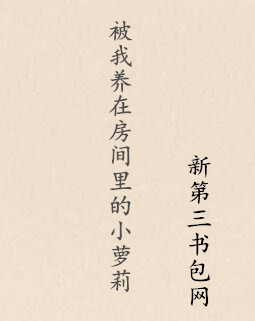 被我养在房间里的小萝莉
新第三书包网